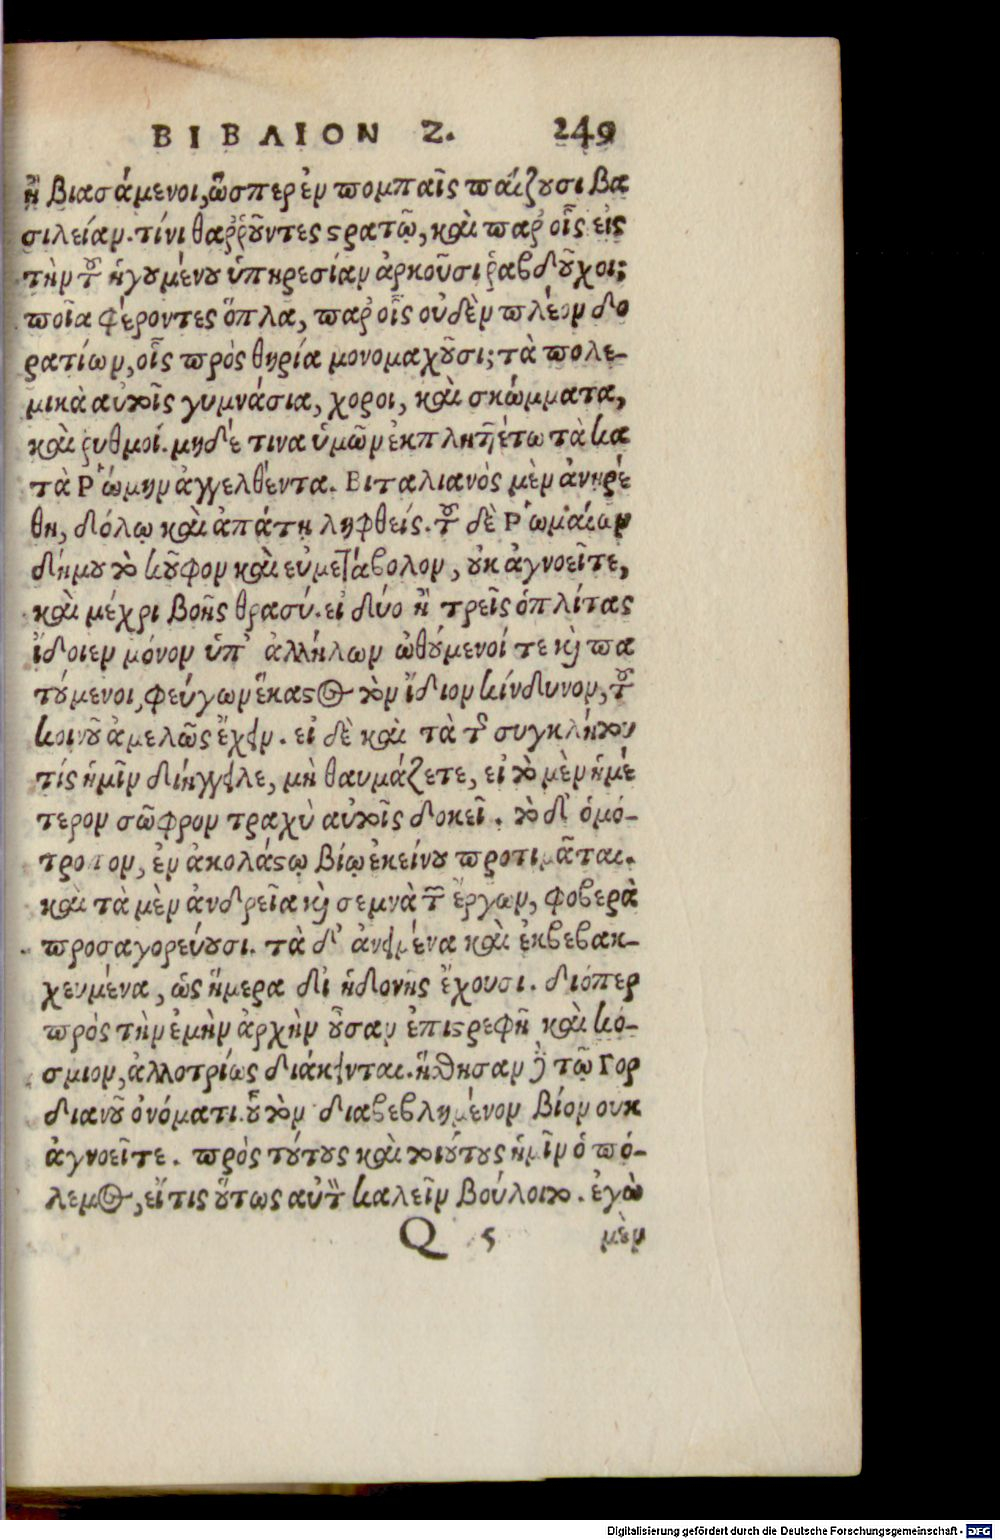 ΒΙΒΛΙΟΝ Ζ. 249
ἢ βιασάμενοι, ὥσπερ ἐν πομπαῖς παίζουσι βα
σιλείαν. τίνι θαῤῥοῦντες στρατῷ, καὶ παρ' οἷς εἰς
τὴν τοῦ ἡγουμένου ὑπηρεσίαν ἀρκοῦσι ῥαβδοῦχοι;
ποῖα φέροντες ὅπλα, παρ' οἷς οὐδὲν πλέον δο
ρατίων, οἷς πρὸς θηρία μονομαχοῦσι; τὰ πολε-
μικὰ αὐτοῖς γυμνάσια, χοροι, καὶ σκώμματα,
καὶ ῥυθμοί. μηδέ τινα ὑμῶν ἐκπληττέτω τὰ κα
τὰ Ῥώμην ἀγγελθέντα. Βιταλιανὸς μὲν ἀνηρέ
θη, δόλῳ καὶ ἀπάτῃ ληφθείς. τοῦ δὲ Ῥωμαίων
δήμου τὸ κοῦφον καὶ εὐμετάβολον, οὐκ ἀγνοεῖτε,
καὶ μέχρι βοῆς θρασύ. εἰ δύο ἢ τρεῖς ὁπλίτας
ἴδοιεν μόνον ὑπ' ἀλλήλων ὠθούμενοί τε καὶ πα
τούμενοι, φεύγων ἕκαστος τὸν ἴδιον κίνδυνον, τοῦ
κοινοῦ ἀμελῶς ἔχειν. εἰ δὲ καὶ τὰ τῆς συγκλήτου
τίς ἡμῖν διήγγειλε, μὴ θαυμάζετε, εἰ τὸ μὲν ἡμέ
τερον σῶφρον τραχὺ αὐτοῖς δοκεῖ. τὸ δ' ὁμό-
τροπον, ἐν ἀκολάστῳ βίῳ ἐκείνου προτιμᾶται.
καὶ τὰ μὲν ἀνδρεῖα καὶ σεμνὰ τῶν ἔργων, φοβερὰ
προσαγορεύουσι. τὰ δ' ἀνειμένα καὶ ἐκβεβακ-
χευμένα, ὡς ἥμερα δι ἡδονῆς ἔχουσι. διόπερ
πρὸς τὴν ἐμὴν ἀρχὴν οὖσαν ἐπιστρεφῆ καὶ κό-
σμιον, ἀλλοτρίως διάκεινται. ἥσθησαν δὲ τῷ Γορ
διανοῦ ὀνόματι. οὗ τὸν διαβεβλημένον βίον ουκ
ἀγνοεῖτε. πρὸς τούτους καὶ τοιούτους ἡμῖν ὁ πό-
λεμος, εἴ τις οὕτως αὐτὸν καλεῖν βούλοιτο. ἐγὼ
Q 5 μὲν
Digitalisierung gefördert durch die Deutsche Forschungsgemeinschaft - DFG